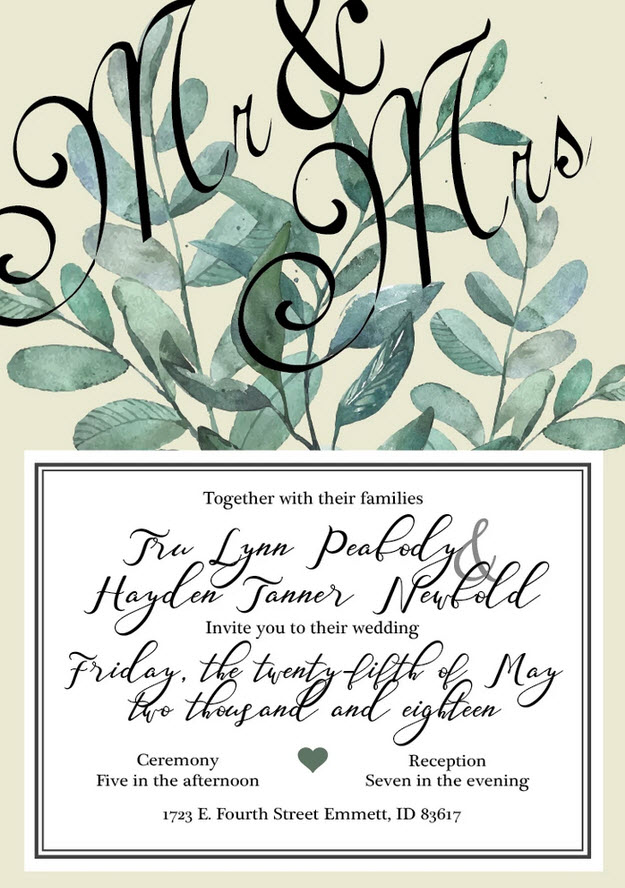 Mr &
Mrs
Together with their families
Tru Lynn Peabody &
Hayden Tanner Newbold
Invite you to their wedding
Friday, the twenty-fifth of May
two thousand and eighteen
Ceremony
Five in the afternoon
Reception
Seven in the evening
1723 E. Fourth Street Emmett, ID 83617